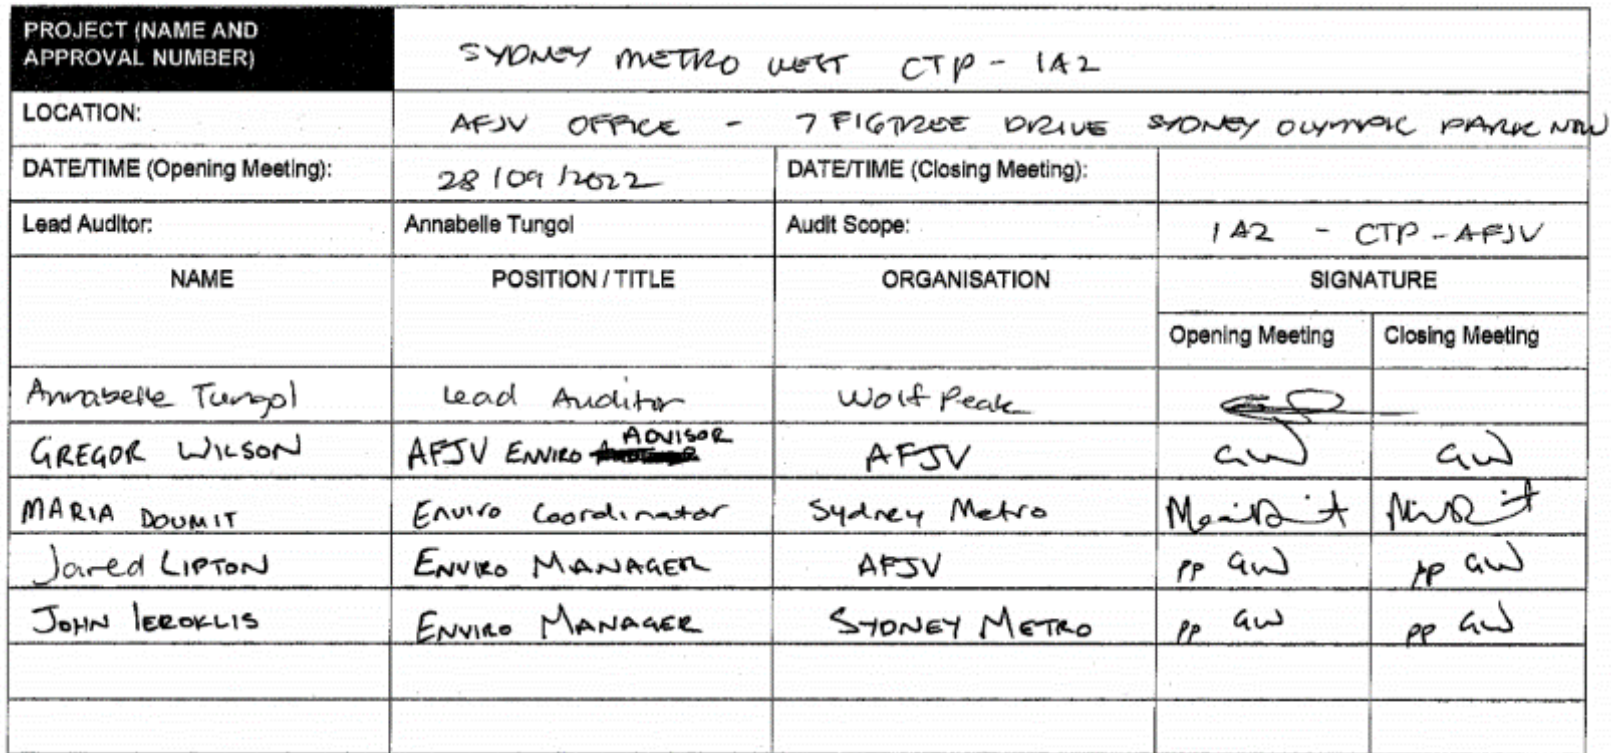 PROJECT (NAME AND
APPROVAL NUMBER)
SYDNEY METRO WEST CTP - IA2
LOCATION:
AFJV OFFICE - 7 FIGTREE DRIVE SYDNEY OLYMPIC PARK NSW
DATE/TIME (Opening Meeting):
28/09/2022
DATE/TIME (Closing Meeting):
Lead Auditor:
Annabelle Tungol
Audit Scope:
IA2 - CTP - AFJV
NAME
POSITION / TITLE
ORGANISATION
SIGNATURE
Opening Meeting
Closing Meeting
Annabelle Tungol
Lead Auditor
Wolf Peak
GREGOR WILSON
AFJV ENVIRO ADVISOR
AFJV
GW
GW
MARIA DOUMIT
Enviro Coordinator
Sydney Metro
Jared LIPTON
ENVIRO MANAGER
AFJV
pp GW
pp GW
JOHN IEROKLIS
ENVIRO MANAGER
SYDNEY METRO
pp GW
pp GW